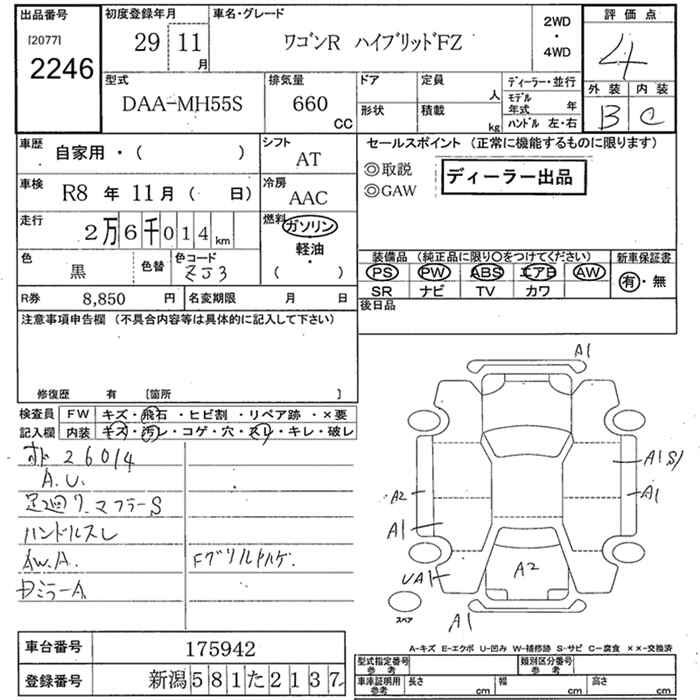 出品番号
[2077]
2246
初度登録年月
29 11
月
車名・グレード
ワゴンR ハイブリッドFZ
2WD
・
4WD
評価点
4
外装 内装
B C
型式
DAA-MH55S
排気量
660
CC
ドア
形状
定員
人
積載
kg
ディーラー・並行
モデル
年式 年
ハンドル 左・右
車歴
自家用・( )
シフト
AT
車検
R8 年 11月( 日)
冷房
AAC
走行
2万6千014km
燃料
ガソリン
・
軽油・
( )
色
黒
色替
色コード
ZJ3
R券 8,850 円
名変期限 月 日
セールスポイント (正常に機能するものに限ります)
◎取説
◎GAW
ディーラー出品
装備品 (純正品に限り○をつけてください)
PS PW ABS エアB AW
SR ナビ TV カワ
新車保証書
有・無
後日品
注意事項申告欄 (不具合内容等は具体的に記入して下さい)
修復歴 有 [箇所 ]
検査員
記入欄
FW キズ・飛石・ヒビ割・リペア跡・×要
内装 キズ・汚レ・コゲ・穴・スレ・キレ・破レ
26014
A.U.
足廻り マフラーS
ハンドルスレ
AW.A.
Fグリルトハゲ
ミラーA
A1
A1 S1
A1
A2
A1
UA1
A2
A1
スペア
A-キズ E-エクボ U-凹み W-補修跡 S-サビ C-腐食 ××-交換済
車台番号 175942
登録番号 新潟581た2137
型式指定番号
参考
類別区分番号
参考
車庫証明用
参考
長さ cm
幅 cm
高さ cm